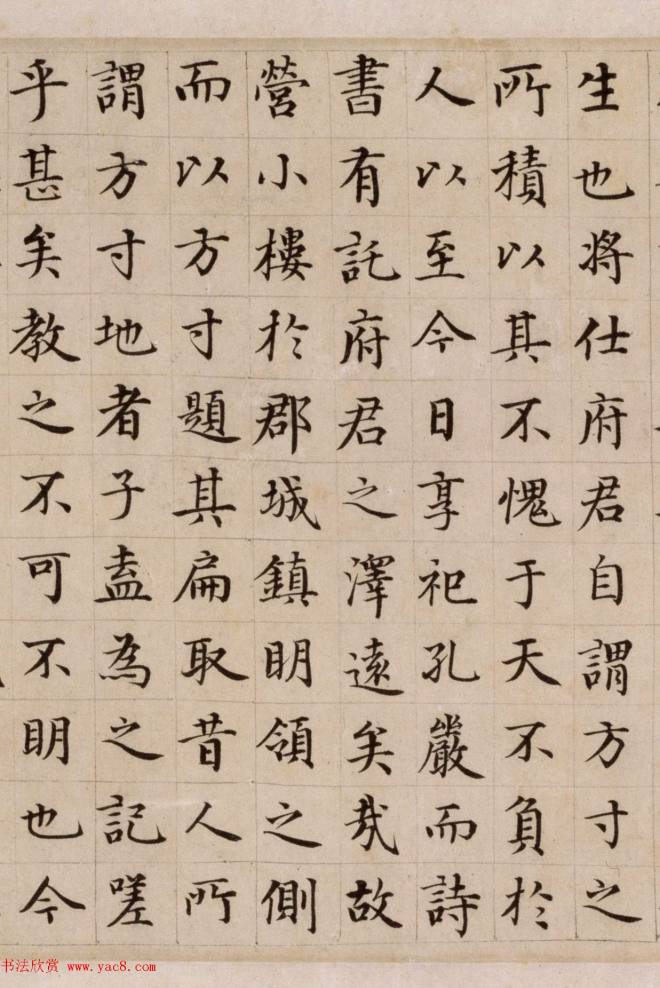 生也将仕府君自謂方寸之
所積以其不愧于天不負於
人以至今日享祀孔嚴而詩
書有託府君之澤遠矣哉故
營小樓於郡城鎮明領之側
而以方寸題其扁取昔人所
謂方寸地者子盍為之記嗟
乎甚矣教之不可不明也今
书法欣赏 www.yac8.com